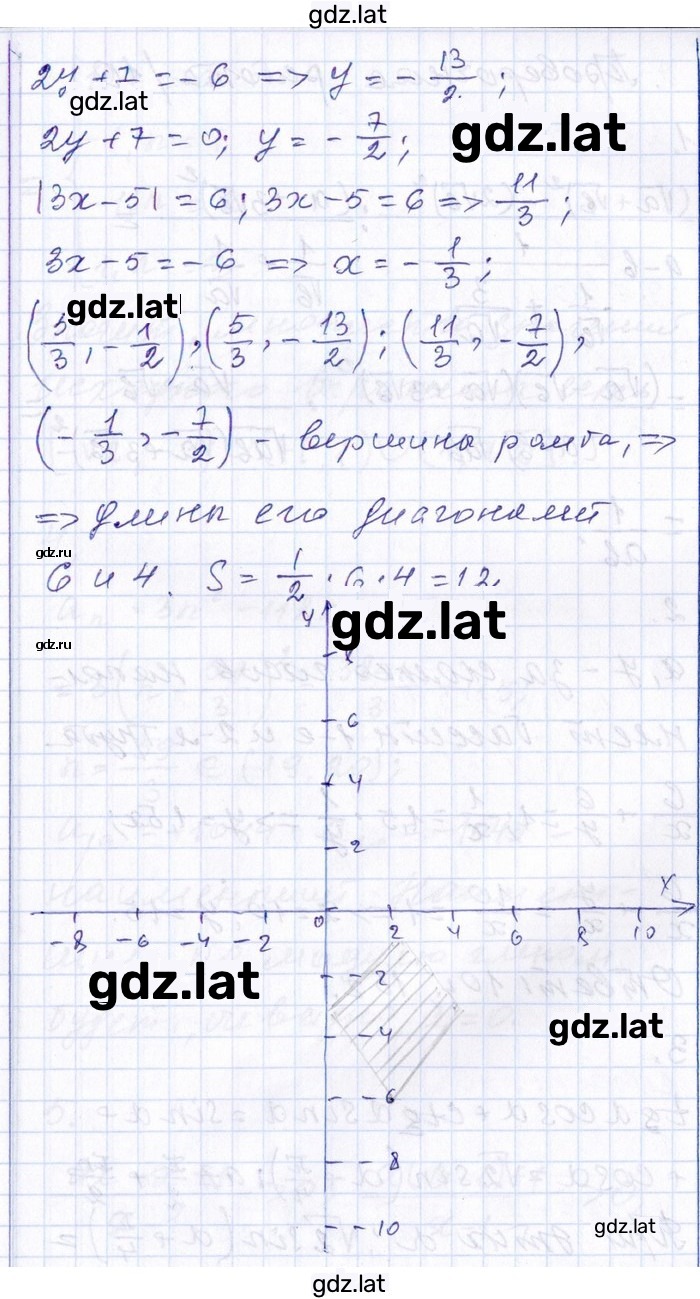 gdz.lat
2y + 7 = - 6 => y = - 13/2 ;
gdz.lat
2y + 7 = 0; y = - 7/2 ;
gdz.lat
|3x - 5| = 6; 3x - 5 = 6 => 11/3 ;
3x - 5 = - 6 => x = - 1/3 ;
gdz.lat
(5/3, - 1/2), (5/3, - 13/2); (11/3, - 7/2),
(- 1/3, - 7/2) - вершины ромба, =>
=> длины его диагоналей
gdz.ru
6 и 4. S = 1/2 · 6 · 4 = 12.
y
gdz.lat
gdz.ru
8
6
4
2
x
-8 -6 -4 -2 0 2 4 6 8 10
gdz.lat
-2
gdz.lat
-4
-6
-8
-10
gdz.lat
gdz.lat